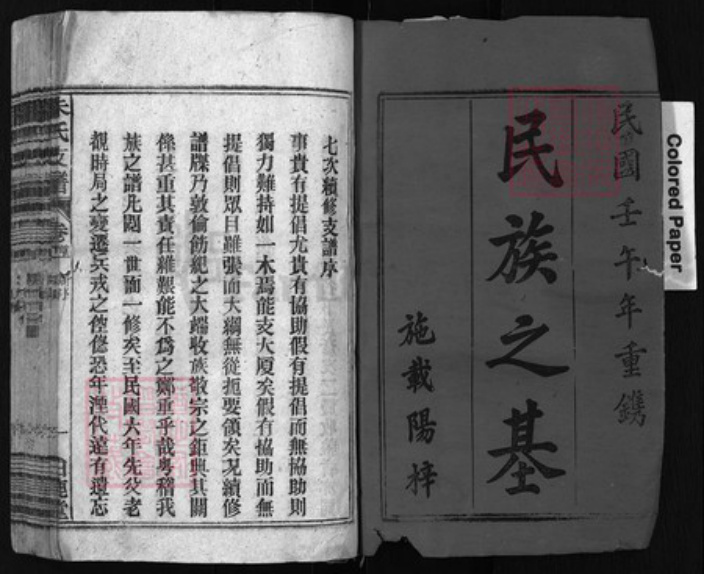 民國壬午年重鐫
民族之基
施載陽梓
Colored Paper
七次續修支譜序
事貴有提倡尤貴有協助假有提倡而無協助則
獨力難持如一木焉能支大厦矣假有協助而無
提倡則眾目雖張而大綱無從扼要領矣况續修
譜牒乃敦倫飭紀之大端收族敬宗之鉅典其關
係甚重其責任維艱能不爲之鄭重乎哉粤稽我
族之譜凡閱一世而一修矣至民國六年先父老
觀時局之變遷兵戎之倥傯恐年湮代遠有遺忘
朱氏支譜